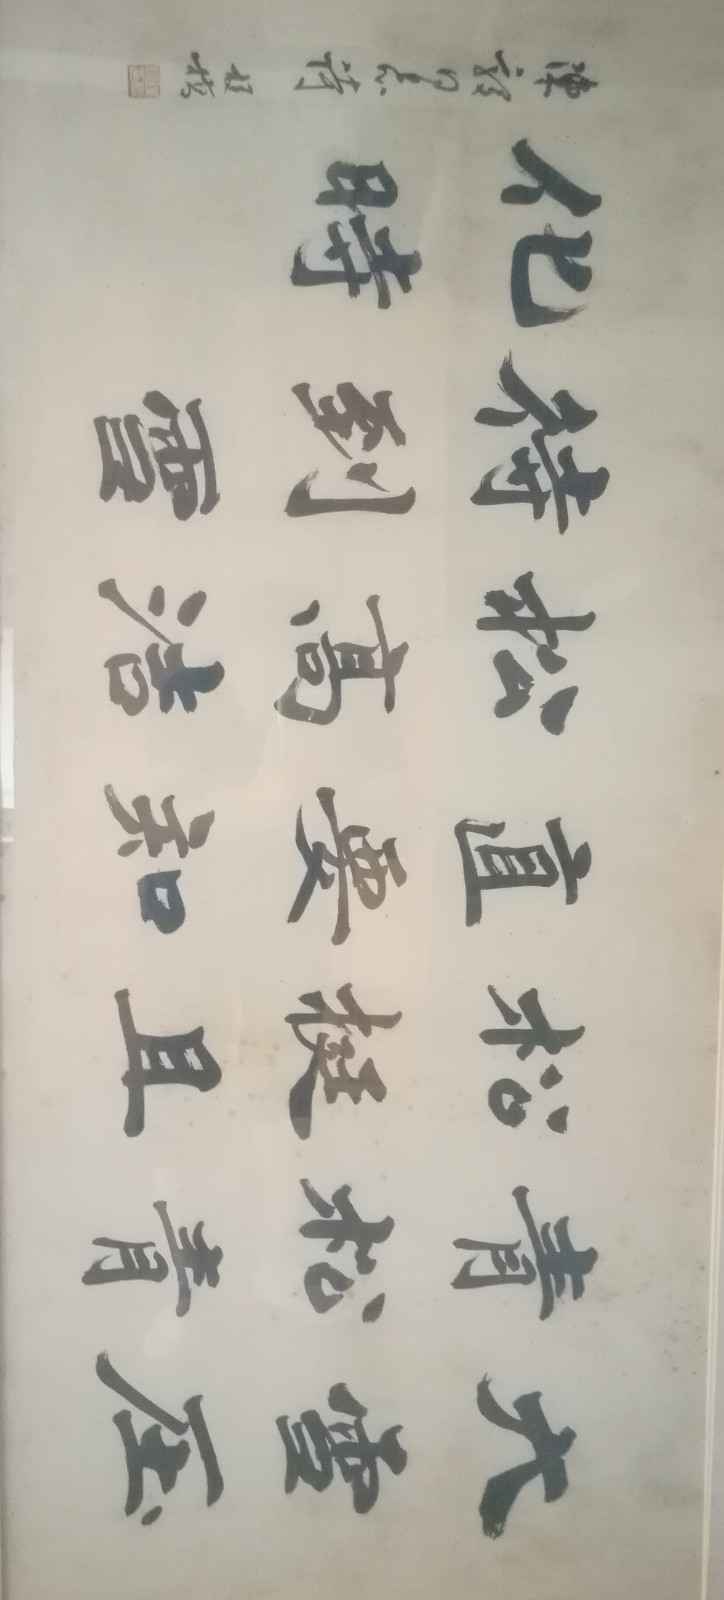 大雪压
青松青
松挺且
直要知
松高洁
待到雪
化時
陳毅同志詩